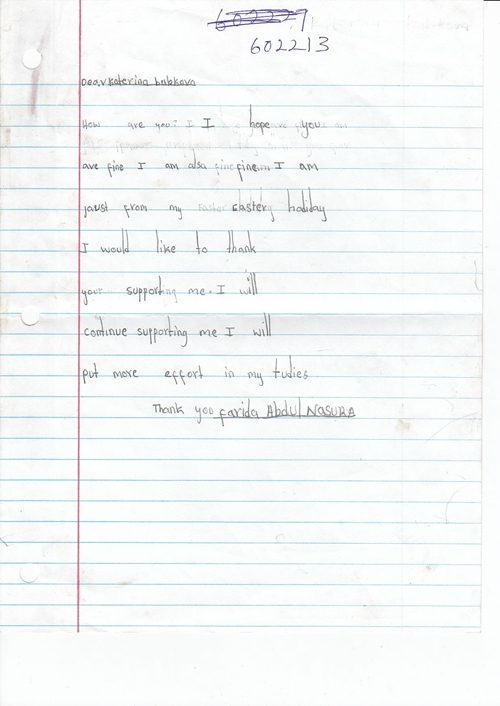 602213
Dear Katerina bubkova
How are you? I I hope you
are fine I am also fine.... I am
jaust from my Eastery holiday
I would like to thank
your supporting me. I will
continue supporting me I will
put more effort in my tudies
Thank you farida Abdul NASURA